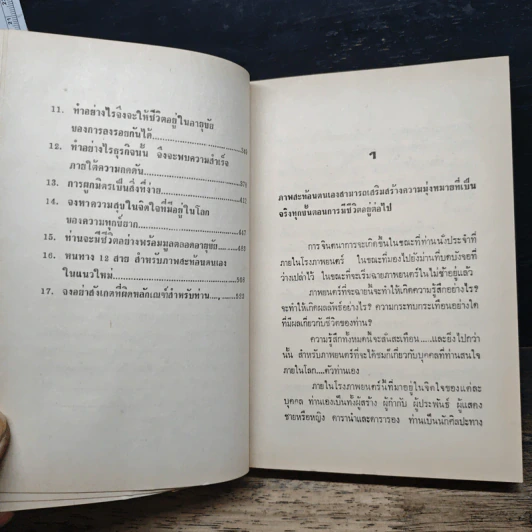 11. ทำอย่างไรจึงจะให้ชีวิตอยู่ในอายุขัย
ของการลงรอยกันได้
12. ทำอย่างไรธุรกิจนั้น จึงจะพบความสำเร็จ
ภายใต้ความกดดัน
13. การผูกมิตรเป็นสิ่งที่ง่าย
14. จงหาความสบในจิตใจที่มีอยู่ในโลก
ของความทุกข์ยาก
15. ท่านจะมีชีวิตอย่างพร้อมมูลตลอดอายุขัย
16. หนทาง 12 สาย สำหรับภาพสะท้อนตนเอง
ในแนวใหม่
17. จงอย่าสังเกตที่ผิดหลักเกณฑ์สำหรับท่าน
๑
ภาพสะท้อนตนเองสามารถเสริมสร้างความมุ่งหมายที่เป็น
จริงทุกขั้นตอนการมีชีวิตอยู่ต่อไป
การจินตนาการจะเกิดขึ้นในขณะที่ท่านนั่งประจำที่
ภายในโรงภาพยนตร์ ในขณะที่มองไปยังม่านที่บดบังจอที่
ว่างเปล่าไว้ ในขณะที่จะเริ่มฉายภาพยนตร์ในไม่ช้าอยู่แล้ว
ภาพยนตร์ที่จะฉายนี้จะทำให้เกิดความรู้สึกอย่างไร?
จะทำให้เกิดผลลัพธ์อย่างไร? ความกระทบกระเทือนอย่างใด
ที่มีผลเกี่ยวกับชีวิตของท่าน?
ความรู้สึกทั้งหมดนี้จะสั่นสะเทือน.....และยิ่งไปกว่า
นั้น สำหรับภาพยนตร์ที่จะได้ชมก็เกี่ยวกับบุคคลที่ท่านสนใจ
ภายในโลก....ตัวท่านเอง
ภายในโรงภาพยนตร์นี้ที่มาอยู่ในจิตใจของแต่ละ
บุคคล ท่านเองเป็นทั้งผู้สร้าง ผู้กำกับ ผู้ประพันธ์ ผู้แสดง
ชายหรือหญิง ดารานำและดารารอง ท่านเป็นนักศิลปะทาง